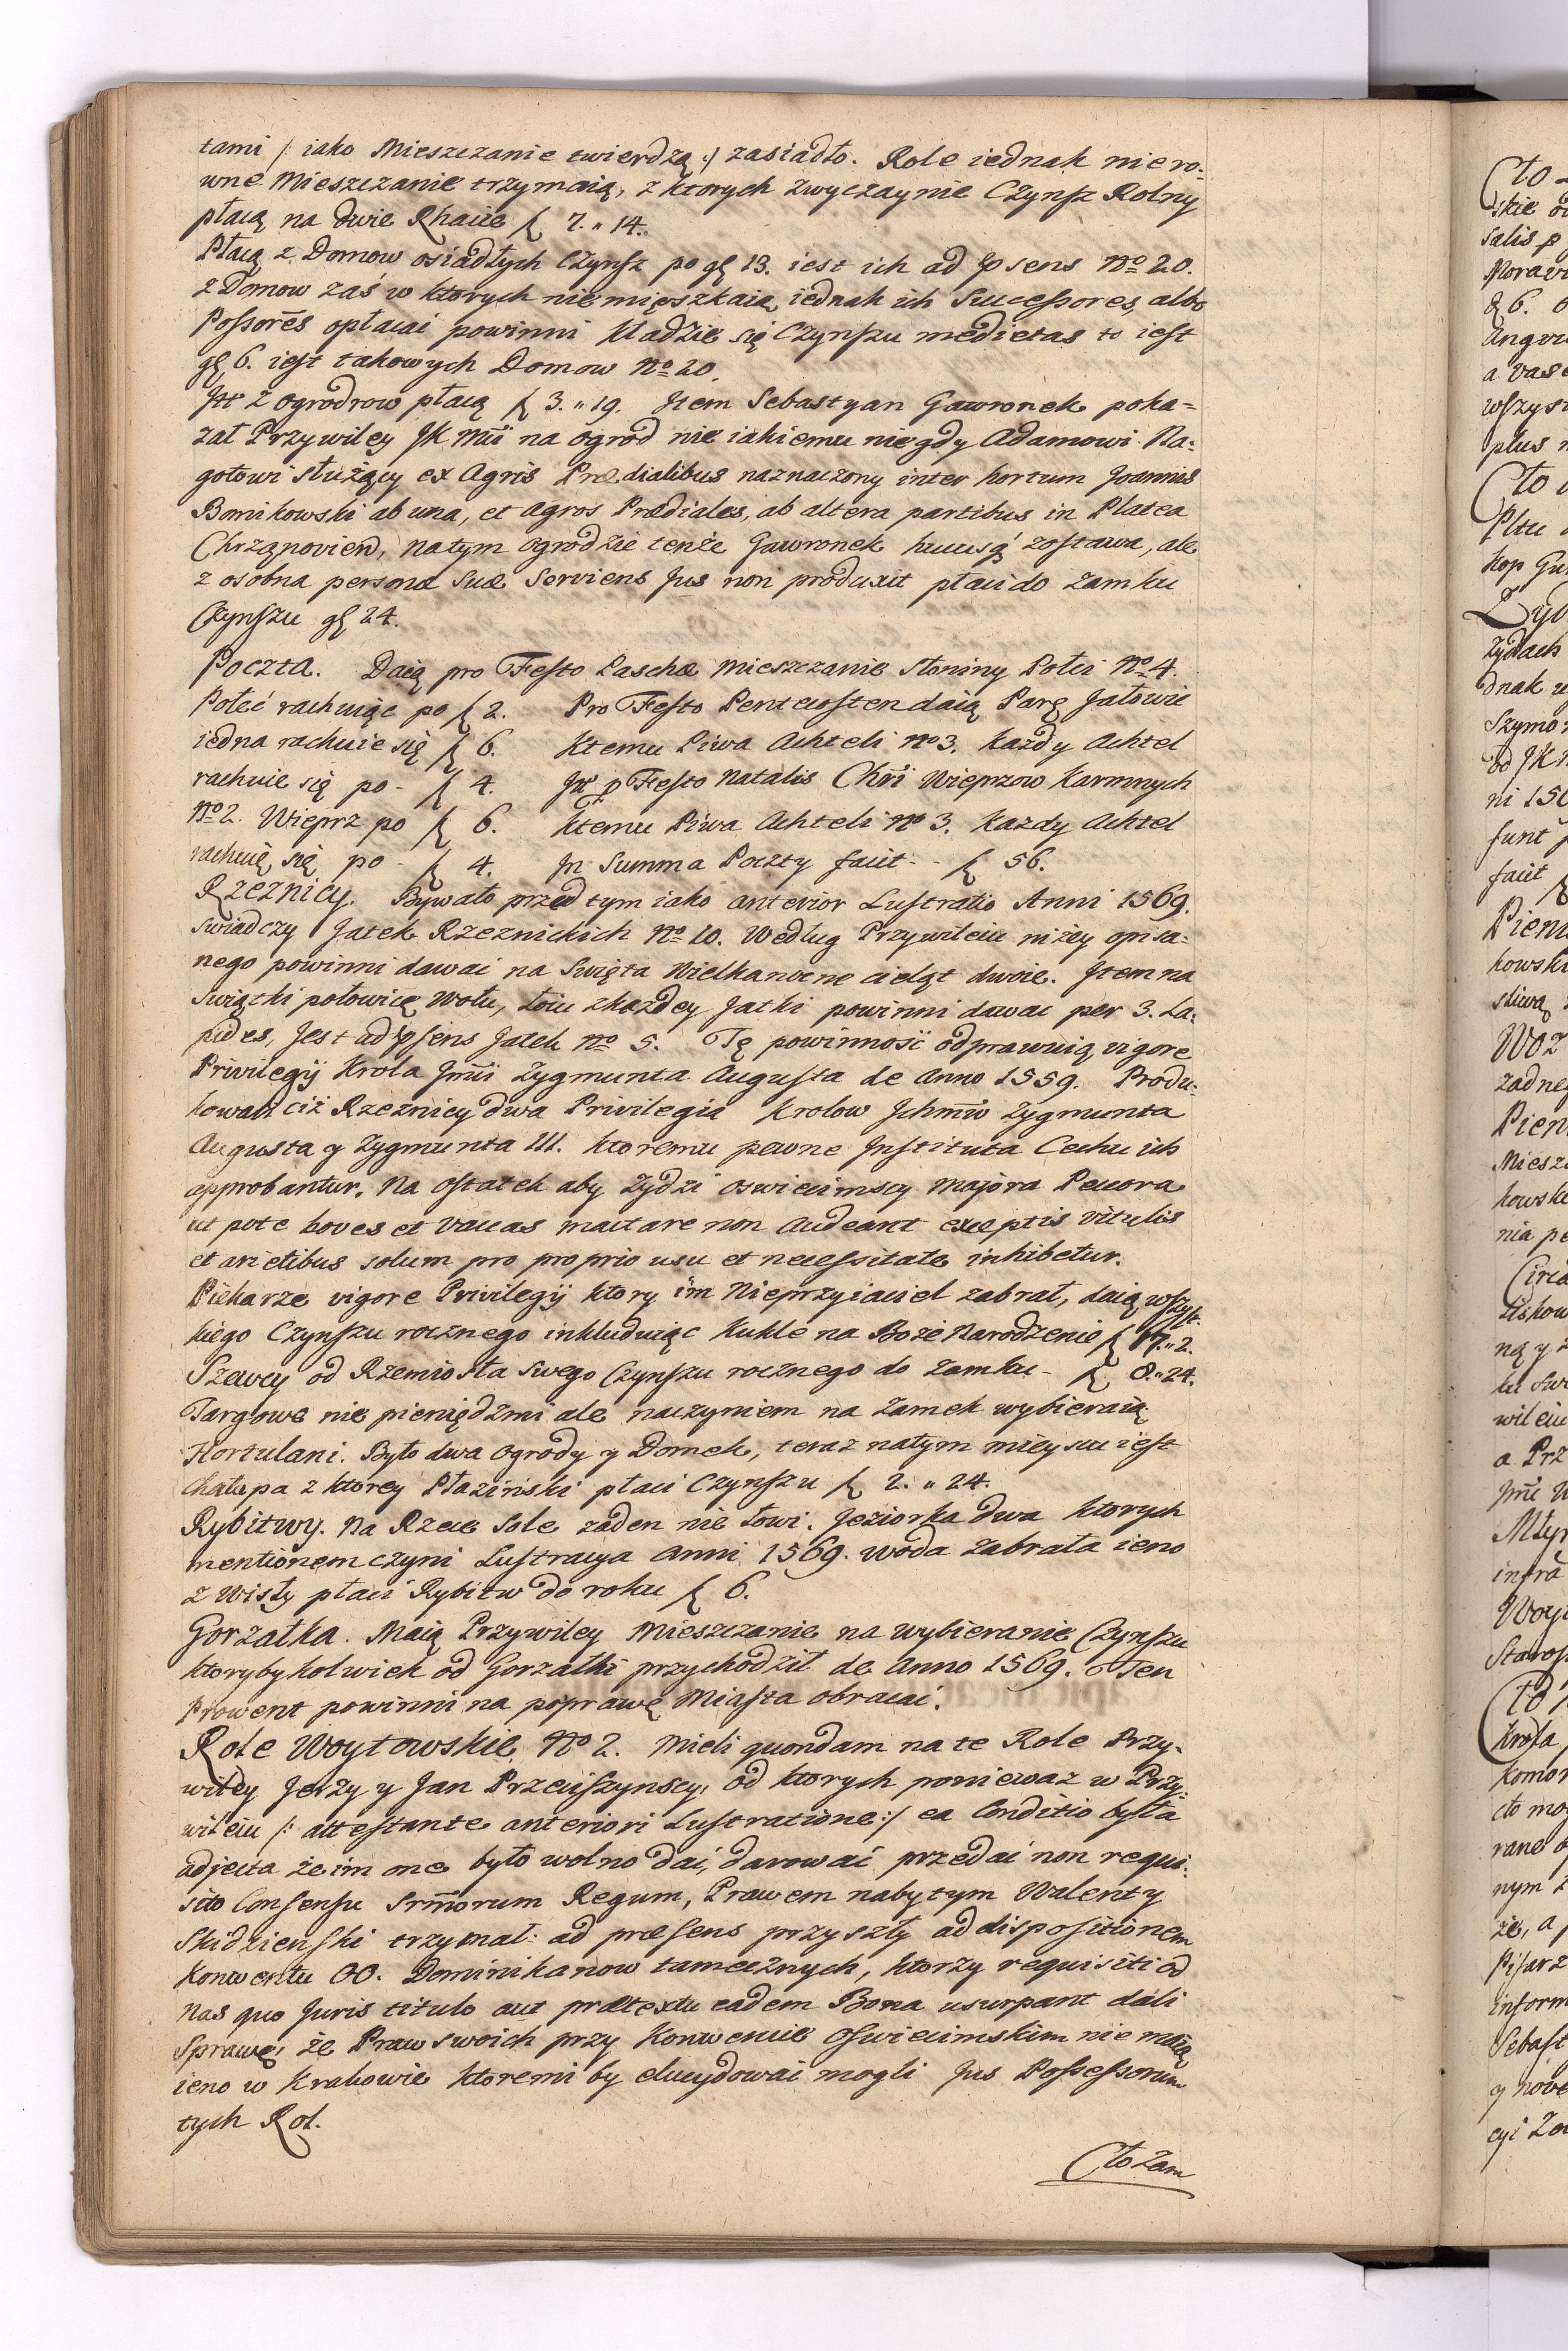 tami /: iako Mieszczanie twierdzą :/ zasiadło. Role iednak niero-
wne Mieszczanie trzymaią, z ktorych zwyczaynie Czynsz Rolny
płacą na dwie Rhacie f 7.„14.
Płacą z Domow osiadłych Czynsz po gl 13. iest ich ad psens No 20.
z Domow zaś w ktorych niemięszkaią iednak ich Successores, albo
Possores opłacai powinni kładzie się Czynszu medietas to iest
gl 6. iest takowych Domow No 20.
Itt z ogrodrow płacą f 3.„19. Item Sebastyan Gawronek poka=
zał Przywiley JK Mci na ogrod nieiakiemu niegdy Adamowi Na=
gotowi służący ex Agris Prædialibus naznaczony inter hortum Joannis
Bonikowski ab una, et agros Prædiales, ab altera partibus in Platea
Chrzanovien, natym ogrodzie tenże Gawronek hucusq zostawa, ale
z osobna persona suæ serviens Jus non produxit płaci do Zamku
Czynszu gl 24.
Poczta. Daią pro Festo Paschæ Mieszczanie słoniny Połci No 4.
Połeć rachuiąc po f 2. Pro Festo Pentecosten daią Parę Jałowic
iedna rachuie się f 6. Ktemu Piwa Achteli No 3. każdy Achtel
rachuie się po - f 4. Itt p Festo Natalis Chri Wieprzow Karmnych
No 2. Wieprz po f 6. Ktemu Piwa Achteli No 3. Kazdy Achtel
rachuię się po - f 4. In Summa Poczty facit - - f 56.
Rzeznicy. Bywało przed tym iako anterior Lustratio Anni 1569.
swiadczy Jatek Rzeznickich No 10. Według Przywileiu niżey opisa=
nego powinni dawai na Swięta Wielkanocne cieląt dwoie. Item na
Swiątki połowicę Wołu, łoiu zkażdey Jatki powinni dawac per 3. La=
pides, Jest ad psens Jatek No 5. Tę powinność odprawuią vigore
Privilegij Krola Jmci Zygmunta Augusta de Anno 1559. Produ=
kowali ciż Rzeźnicy dwa Privilegia Krolow Ichmciw Zygmunta
Augusta y Zygmunta III. ktoremu pewne Instituta Cechu ich
approbantur. Na ostatek aby Żydzi oswiecimscy majora Pecora
ut pote boves et vaccas mactare non audeant exceptis vitulis
et arietibus solum pro proprio usu et necessitate inhibetur.
Piekarze vigore Privilegij ktory im Nieprzyiaciel zabrał, daią wszyst
kiego Czynszu rocznego inkluduiąc Kukle na Boże Narodzenie f 17.„2.
Szewcy od Rzemiosła swego Czynszu rocznego do Zamku - f 8.„24.
Targowe nie pieniędzmi ale naczyniem na Zamek wybieraią
Hortulani. Było dwa ogrody y Domek, teraz natym mieyscu iest
chałupa z ktorey Płaziński płaci Czynszu f 2.„24.
Rybitwy. Na Rzece Sole żaden nie łowi. Jeziorka dwa ktorych
mentionem czyni Lustracya Anni 1569. woda zabrała ieno
z Wisły płaci Rybitw do roku f 6.
Gorzałka. Maią Przywiley Mieszczanie na wybieranie Czynszu
ktorybykolwiek od Gorzałki przychodził de Anno 1569. Ten
Prowent powinni na poprawę Miasta obracai.
Role Woytowskie No 2. Mieli quondam na te Role Przy-
wiley Jerzy y Jan Przeciszynscy, od ktorych poniewaz w Przy-
wileiu /: attestante anteriori Lustratione :/ ea Conditio była
adjecta że im one było wolno dai, darowai przedai non requi-
sito Consensu Srmorum Regum, Prawem nabytym Walenty
Skidzienski trzymał: ad præsens przyszły ad dispositionem
Konwentu OO. Dominikanow tamecznych, ktorzy requisiti od
nas quo Juris titulo aut prætextu eadem Bona usurpant dali
Sprawę, że Praw swoich przy Konwencie Oswiecimskim nie maią
ieno w Krakowie ktoremi by elucydowai mogli Jus Possessorum
tych Rol.
Cło Zam